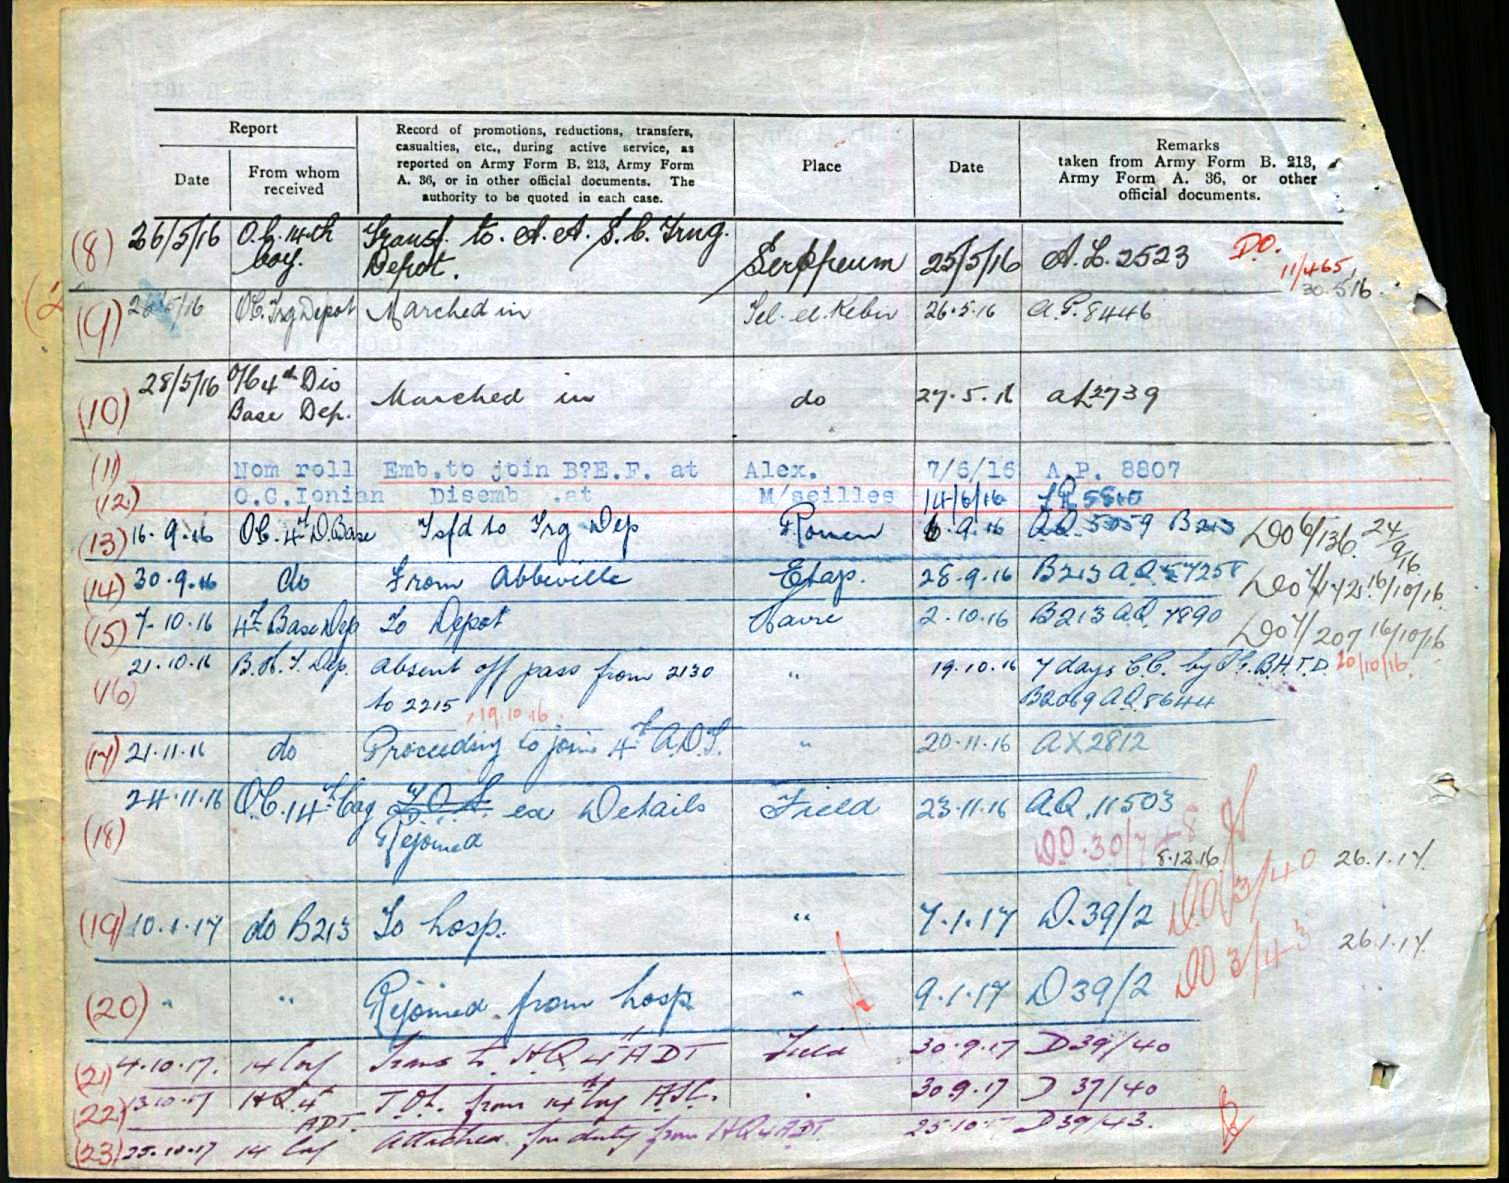 Report
Date
From whom
received
Record of promotions, reductions, transfers,
casualties, etc., during active service, as
reported on Army Form B. 213, Army Form
A. 36, or in other official documents. The
authority to be quoted in each case.
Place
Date
Remarks
taken from Army Form B. 213,
Army Form A. 36, or other
official documents.
(8) 26/5/16 O.C. 14th Transf. to A.A.S.C. Trng.
Coy. Depot. Serapeum 25/5/16 A.L. 2523 D.O.
11/465
30.5.16
(9) 26/5/16 OC. Trg Depot Marched in Tel-el-Kebir 26.5.16 A.P. 8446
(10) 28/5/16 O/C 4th Div
Base Dep. Marched in do 27.5.16 AL2739
(11) Nom roll Emb.to join B?E.F. at Alex. 7/6/16 A.P. 8807
(12) O.C.Ionian Disemb .at M/seilles 14/6/16
(13) 16.9.16 OC. 4th D. Base Tsfd to Trg Dep Rouen 6.9.16 A.Q. 5059 B213 DO 6/136 24/9/16
(14) 30.9.16 do From Abbeville Etap. 28.9.16 B213 A.Q. 7258 DO 16/10/16
(15) 7.10.16 4th Base Dep To Depot Havre 2.10.16 B213 AQ. 7890 DO 7/207 16/10/16
(16) 21.10.16 B.H.T. Dep. Absent off pass from 2130 " 19.10.16 7 days C.C. by B.H.T.D. 20/10/16
to 2215 19.10.16 B2069 A.Q. 8644
(17) 21.11.16 do Proceeding to join 4th A.D.T. " 20.11.16 AX2812
(18) 24.11.16 O.C. 14th Coy ex Details Field 23.11.16 A.Q. 11503
Rejoined DO. 30/7 8.12.16
(19) 10.1.17 do B213 To hosp. " 7.1.17 D.39/2 DO 3/40 26.1.17.
(20) " " Rejoined from hosp " 9.1.17 D39/2 DO 3/43 26.1.17.
(21) 4.10.17. 14 Coy Trans to HQ 4th ADT Field 30.9.17 D39/40
(22) 13.10.17 HQ 4th
ADT. T.O.S. from 14th Coy ASC. . 30.9.17 D 37/40
(23) 25.10.17 14 Coy Attached for duty from HQ 4 ADT. 25.10.17 D39/43.